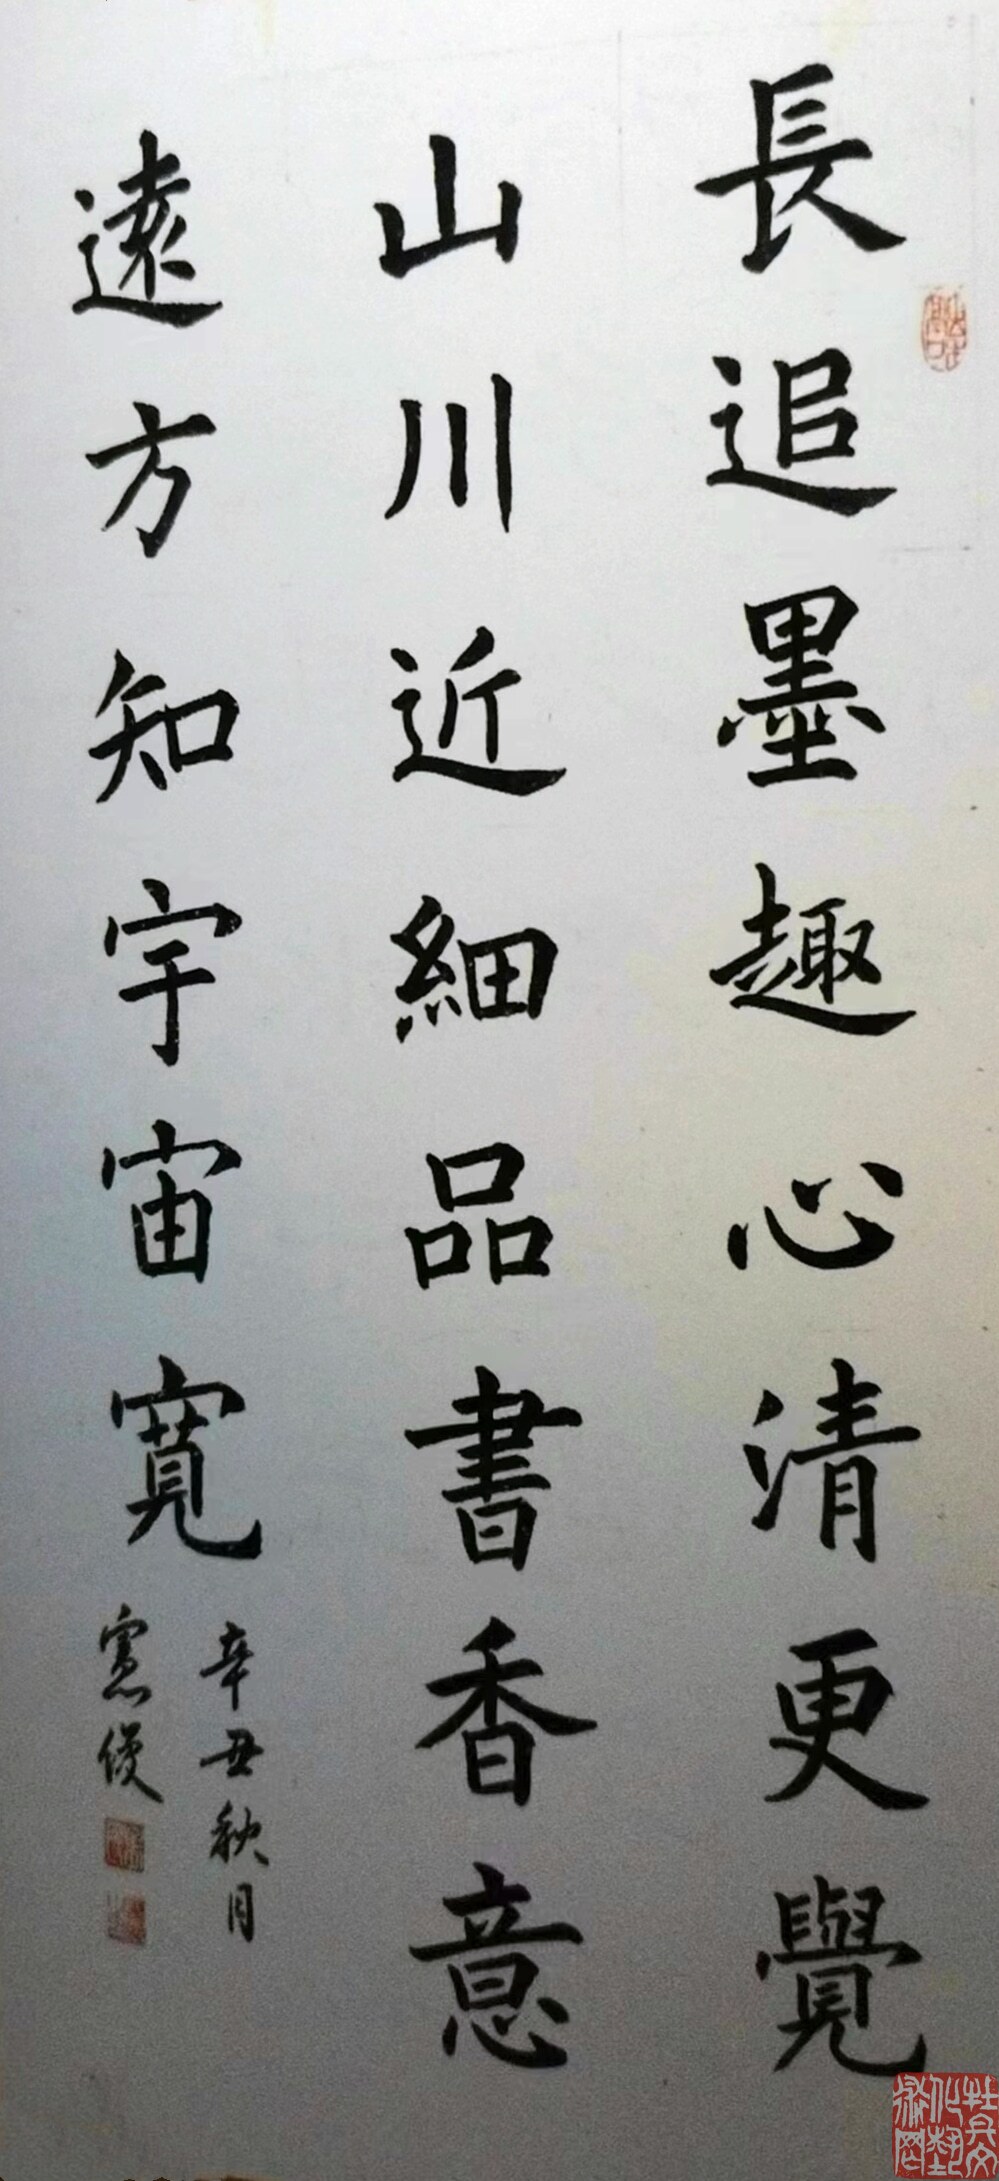 長追墨趣心清更覺
山川近細品書香意
遠方知宇宙寬
辛丑秋月
憲俊